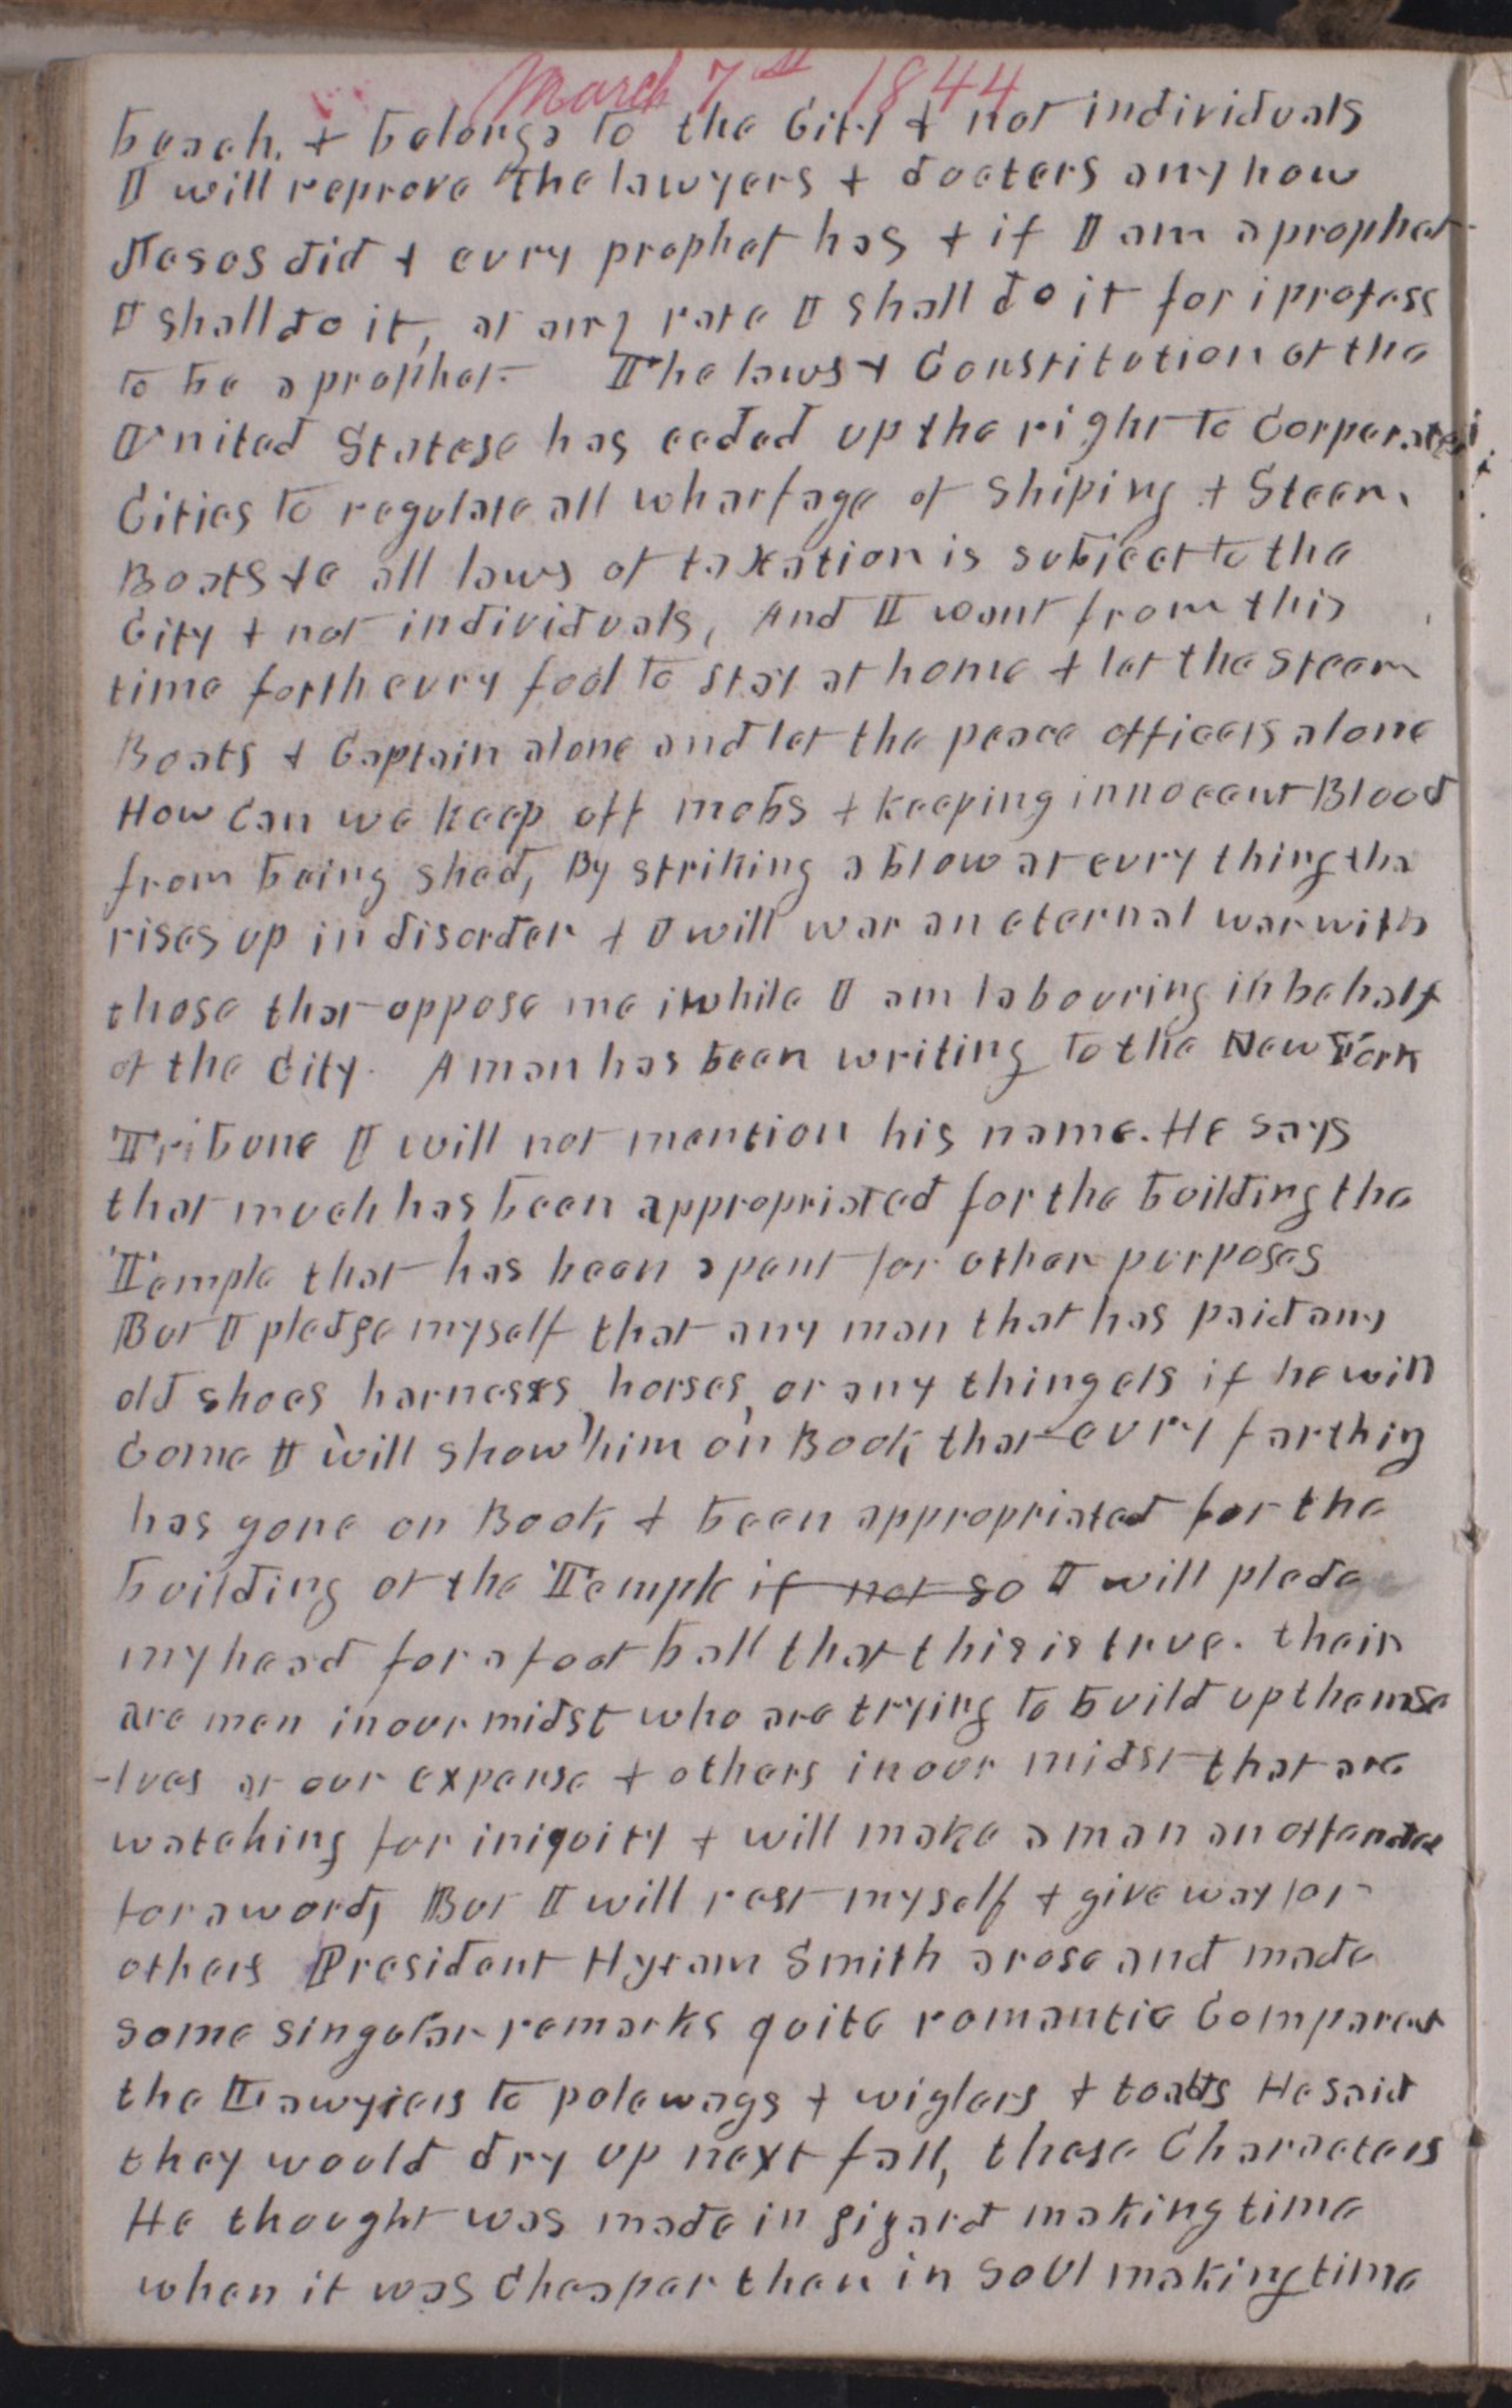 March 7st 1844
beach. & belongs to the City & not individuals
I will reprove the lawyers & docters any how
Jesus did & evry prophet has & if I am a prophet
I shall do it, at any rate I shall do it for i profess
to be a prophet. The laws & Constitution of the
United Statese has ceded up the right to Corperate
Cities to regulate all wharfage of Shiping & Steem
Boats &c all laws of taxation is subject to the
City & not individuals, And I want from this
time forth evry fool to stay at home & let the Steem
Boats & Captain alone and let the peace officers alone
How can we keep off mobs & keeping innocent Blood
from being shed, By striking a blow at evry thing tha
rises up in disorder & I will war an eternal war with
those that oppose me while I am labouring in behalf
of the City. A man has been writing to the New York
Tribune I will not mention his name. He says
that much has been appropriated for the building the
Temple that has been spent for other purposes
But I pledge myself that any man that has paid any
old shoes harnesses, horses, or any thing els if he will
Come I will show him on Book that evry farthing
has gone on Book & been appropriated for the
building of the Temple if not so I will pledg
my head for a foot ball that this is true. their
are men in our midst who are trying to build up themse
-lves at our expense & others in our midst that are
watching for iniquity & will make a man an offender
for a word, But I will rest myself & give way for
others President Hyram Smith arose and made
some singular remarks quite romantic Compared
the Lawyiers to polewags & wiglers & toads He said
they would dry up next fall, these Characters
He thought was made in gizard making time
when it was cheaper then in soul making time